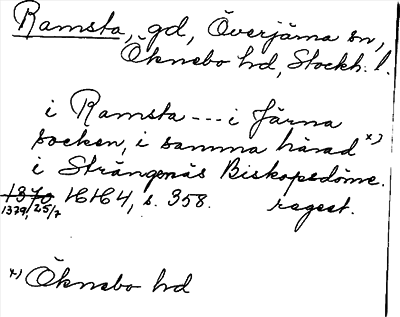 Ramsta, gd, Överjärna sn,
Öknebo hd, Stockh. l.
i Ramsta --- i Järna
socken, i samma härad x)
i Strängnäs Biskopsdöme.
1370 HH4, s. 358. regest.
1379/25/7
x) Öknebo hd